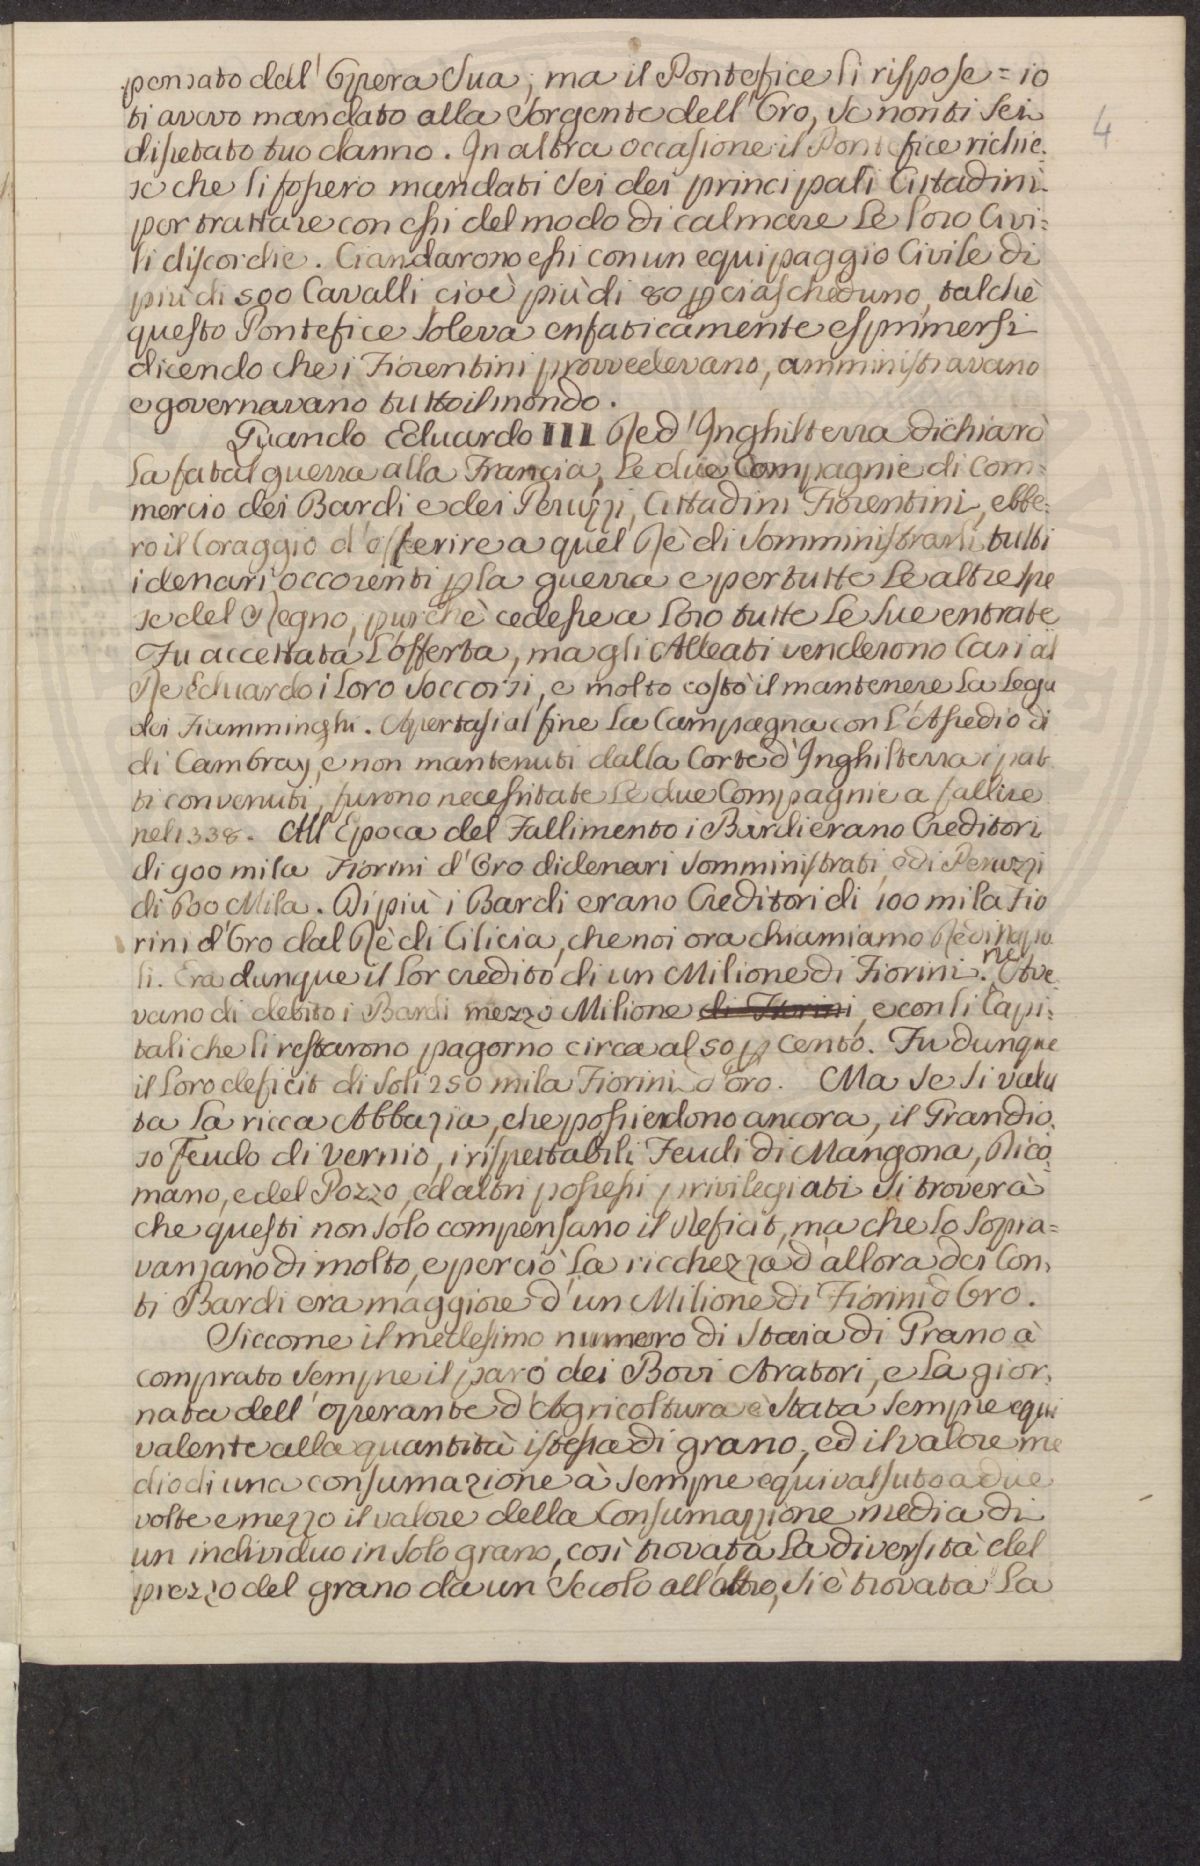 pensato dall' Opera Sua, ma il Pontefice li rispose = io
ti avevo mandato alla Sorgente dell' Oro, se non ti sei
disetato tuo danno. In altra occasione il Pontefice richie-
se che li fossero mandati Sei dei principali Cittadini
per trattare con essi del modo di calmare Le loro Civi=
li discordie. Ci andarono essi con un equipaggio Civile di
più di 500 Cavalli, cioè più di 80 p ciascheduno, talchè
questo Pontefice soleva enfaticamente esprimersi
dicendo che i Fiorentini provvedevano, amministravano
e governavano tutto il mondo.
Quando Eduardo III Re d' Inghilterra dichiarò
La fatal guerra alla Francia, Le due Compagnie di Com=
mercio dei Bardi e dei Peruzzi, Cittadini Fiorentini, ebbe=
ro il Coraggio d' offerire a quel Rè di Somministrarli tutti
i denari occorenti p la guerra e per tutte Le altre spe
se del Regno, purchè cedesse a Loro tutte Le sue entrate
Fu accettata L'offerta, ma gli Alleati venderono Cari al
Re Eduardo i Loro Soccorsi, e molto costò il mantenere La Lega
dei Fiamminghi. Apertasi al fine La Campagna con L'Assedio di
di Cambray, e non mantenuti dalla Corte d' Inghilterra i pat
ti convenuti, furono necessitate Le due Compagnie a fallire
nel 1338. All' Epoca del Fallimento i Bardi erano Creditori
di 900 mila Fiorini d' Oro di denari Somministrati, ed i Peruzzi
di 600 Mila. Di più i Bardi erano Creditori di 100 mila Fio
rini d' Oro dal Rè di Cilicia, che noi ora chiamiamo Rè di Napo
li. Era dunque il Lor credito di un Milione di Fiorini. Ne Ave
vano di debito i Bardi mezzo Milione di Fiorini, e con li Capi=
tali che li restarono pagorno circa al 50 p Cento. Fu dunque
il Loro deficit di Soli 250 mila Fiorini d' oro. Ma se si valu
ta La ricca Abbazia, che possiedono ancora, il Grandio
so Feudo di Vernio, i rispettabili Feudi di Mangona, Rico
mano, e del Pozzo, ed altri possessi privilegiati si troverà
che questi non solo compensano il Deficit, ma che Lo Sopra=
vanzano di molto, e perciò La ricchezza d' allora dei Con,
ti Bardi era maggiore d' un Milione di Fiorini d' Oro.
Siccome il medesimo numero di Staia di Grano à
comprato sempre il paro dei Bovi Aratori, e La gior,
nata dell' operante d' Agricoltura è stata sempre equi
valente alla quantità istessa di grano, ed il valore me
dio di una consumazione à sempre equivalsuto a due
volte e mezzo il valore della Consumazzione media di
un individuo in solo grano, così trovata La diversità del
prezzo del grano da un Secolo all' altro, si è trovata La
4